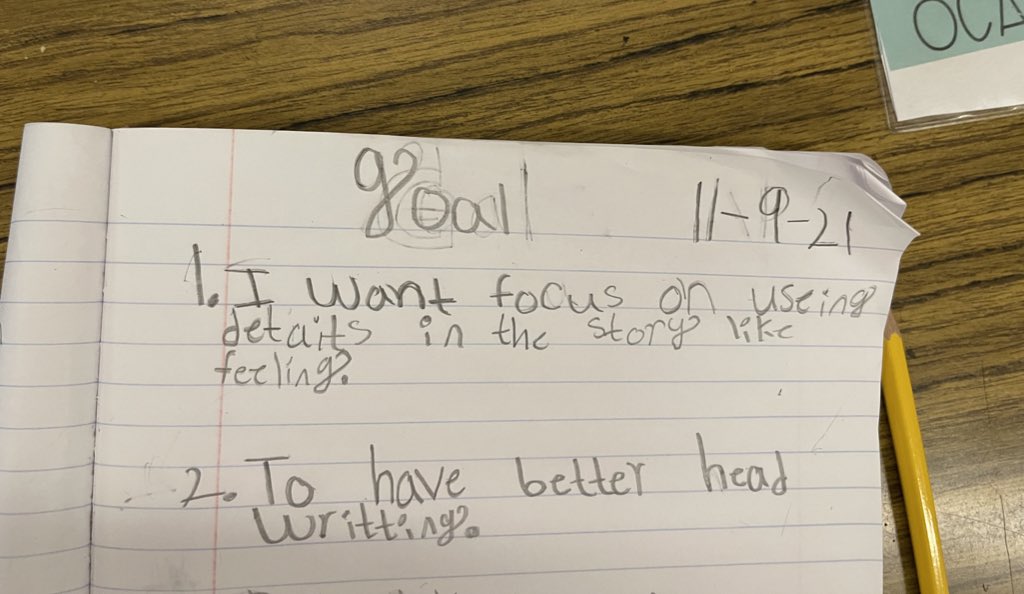 OCA
goal 11-9-21
1. I want focus on useing
details in the story like
feeling.
2. To have better head
writting.